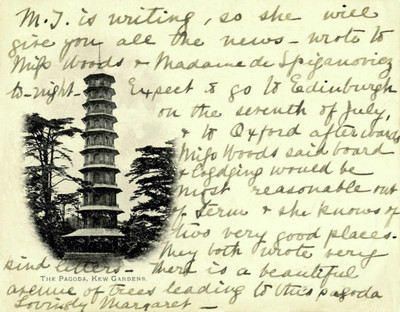 M.J. is writing, so she will
give you all the news - wrote to
Miss Woods & Madame de Spiganovicz
to-night. Expect to go to Edinburgh
on the seventh of July,
& to Oxford afterwards
Miss Woods said board
& Lodging would be
most reasonable out
of term & she knows of
two very good places.
They both wrote very
kind letters - There is a beautiful
THE PAGODA, KEW GARDENS.
avenue of trees leading to this pagoda
Lovingly Margaret -